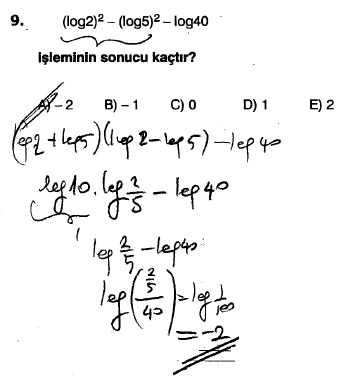 9. (log2)² – (log5)² – log40
işleminin sonucu kaçtır?
A) – 2 B) – 1 C) 0 D) 1 E) 2
(log2 + log5)(log2 – log5) – log40
log10 . log 2/5 – log40
1
log 2/5 – log40
log((2/5)/40) = log 1/100
= –2